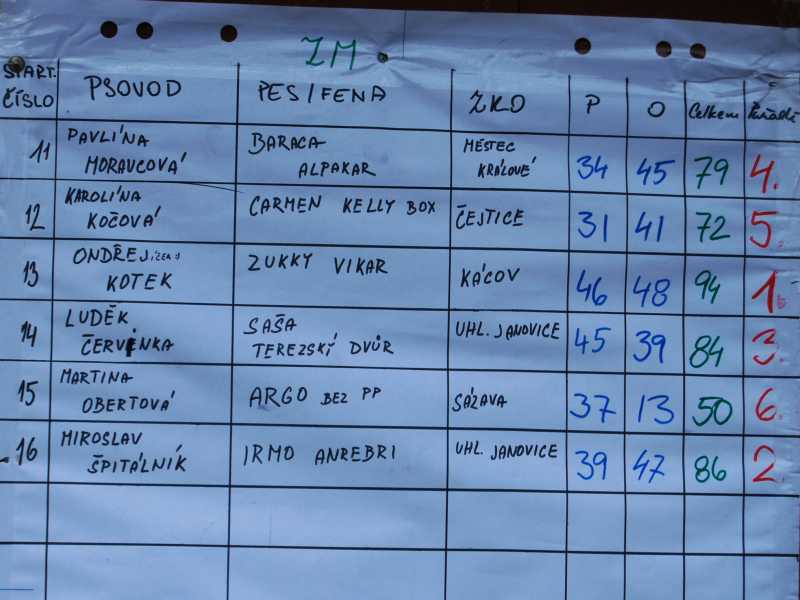 ZM
START. ČÍSLO PSOVOD PES/FENA ZKO P O Celkem
11 PAVLÍNA MORAVCOVÁ BARACA ALPAKAR MĚSTEC KRÁLOVÉ 34 45 79 4.
12 KAROLÍNA KOČOVÁ CARMEN KELLY BOX ČEJTICE 31 41 72 5.
13 ONDŘEJ KOTEK ZUKKY VIKAR KÁCOV 46 48 94 1.
14 LUDĚK ČERVENKA SAŠA TEREZSKÝ DVŮR UHL. JANOVICE 45 39 84 3.
15 MARTINA OBERTOVÁ ARGO BEZ PP SÁZAVA 37 13 50 6.
16 MIROSLAV ŠPITÁLNÍK IRMO ANREBRI UHL. JANOVICE 39 47 86 2.